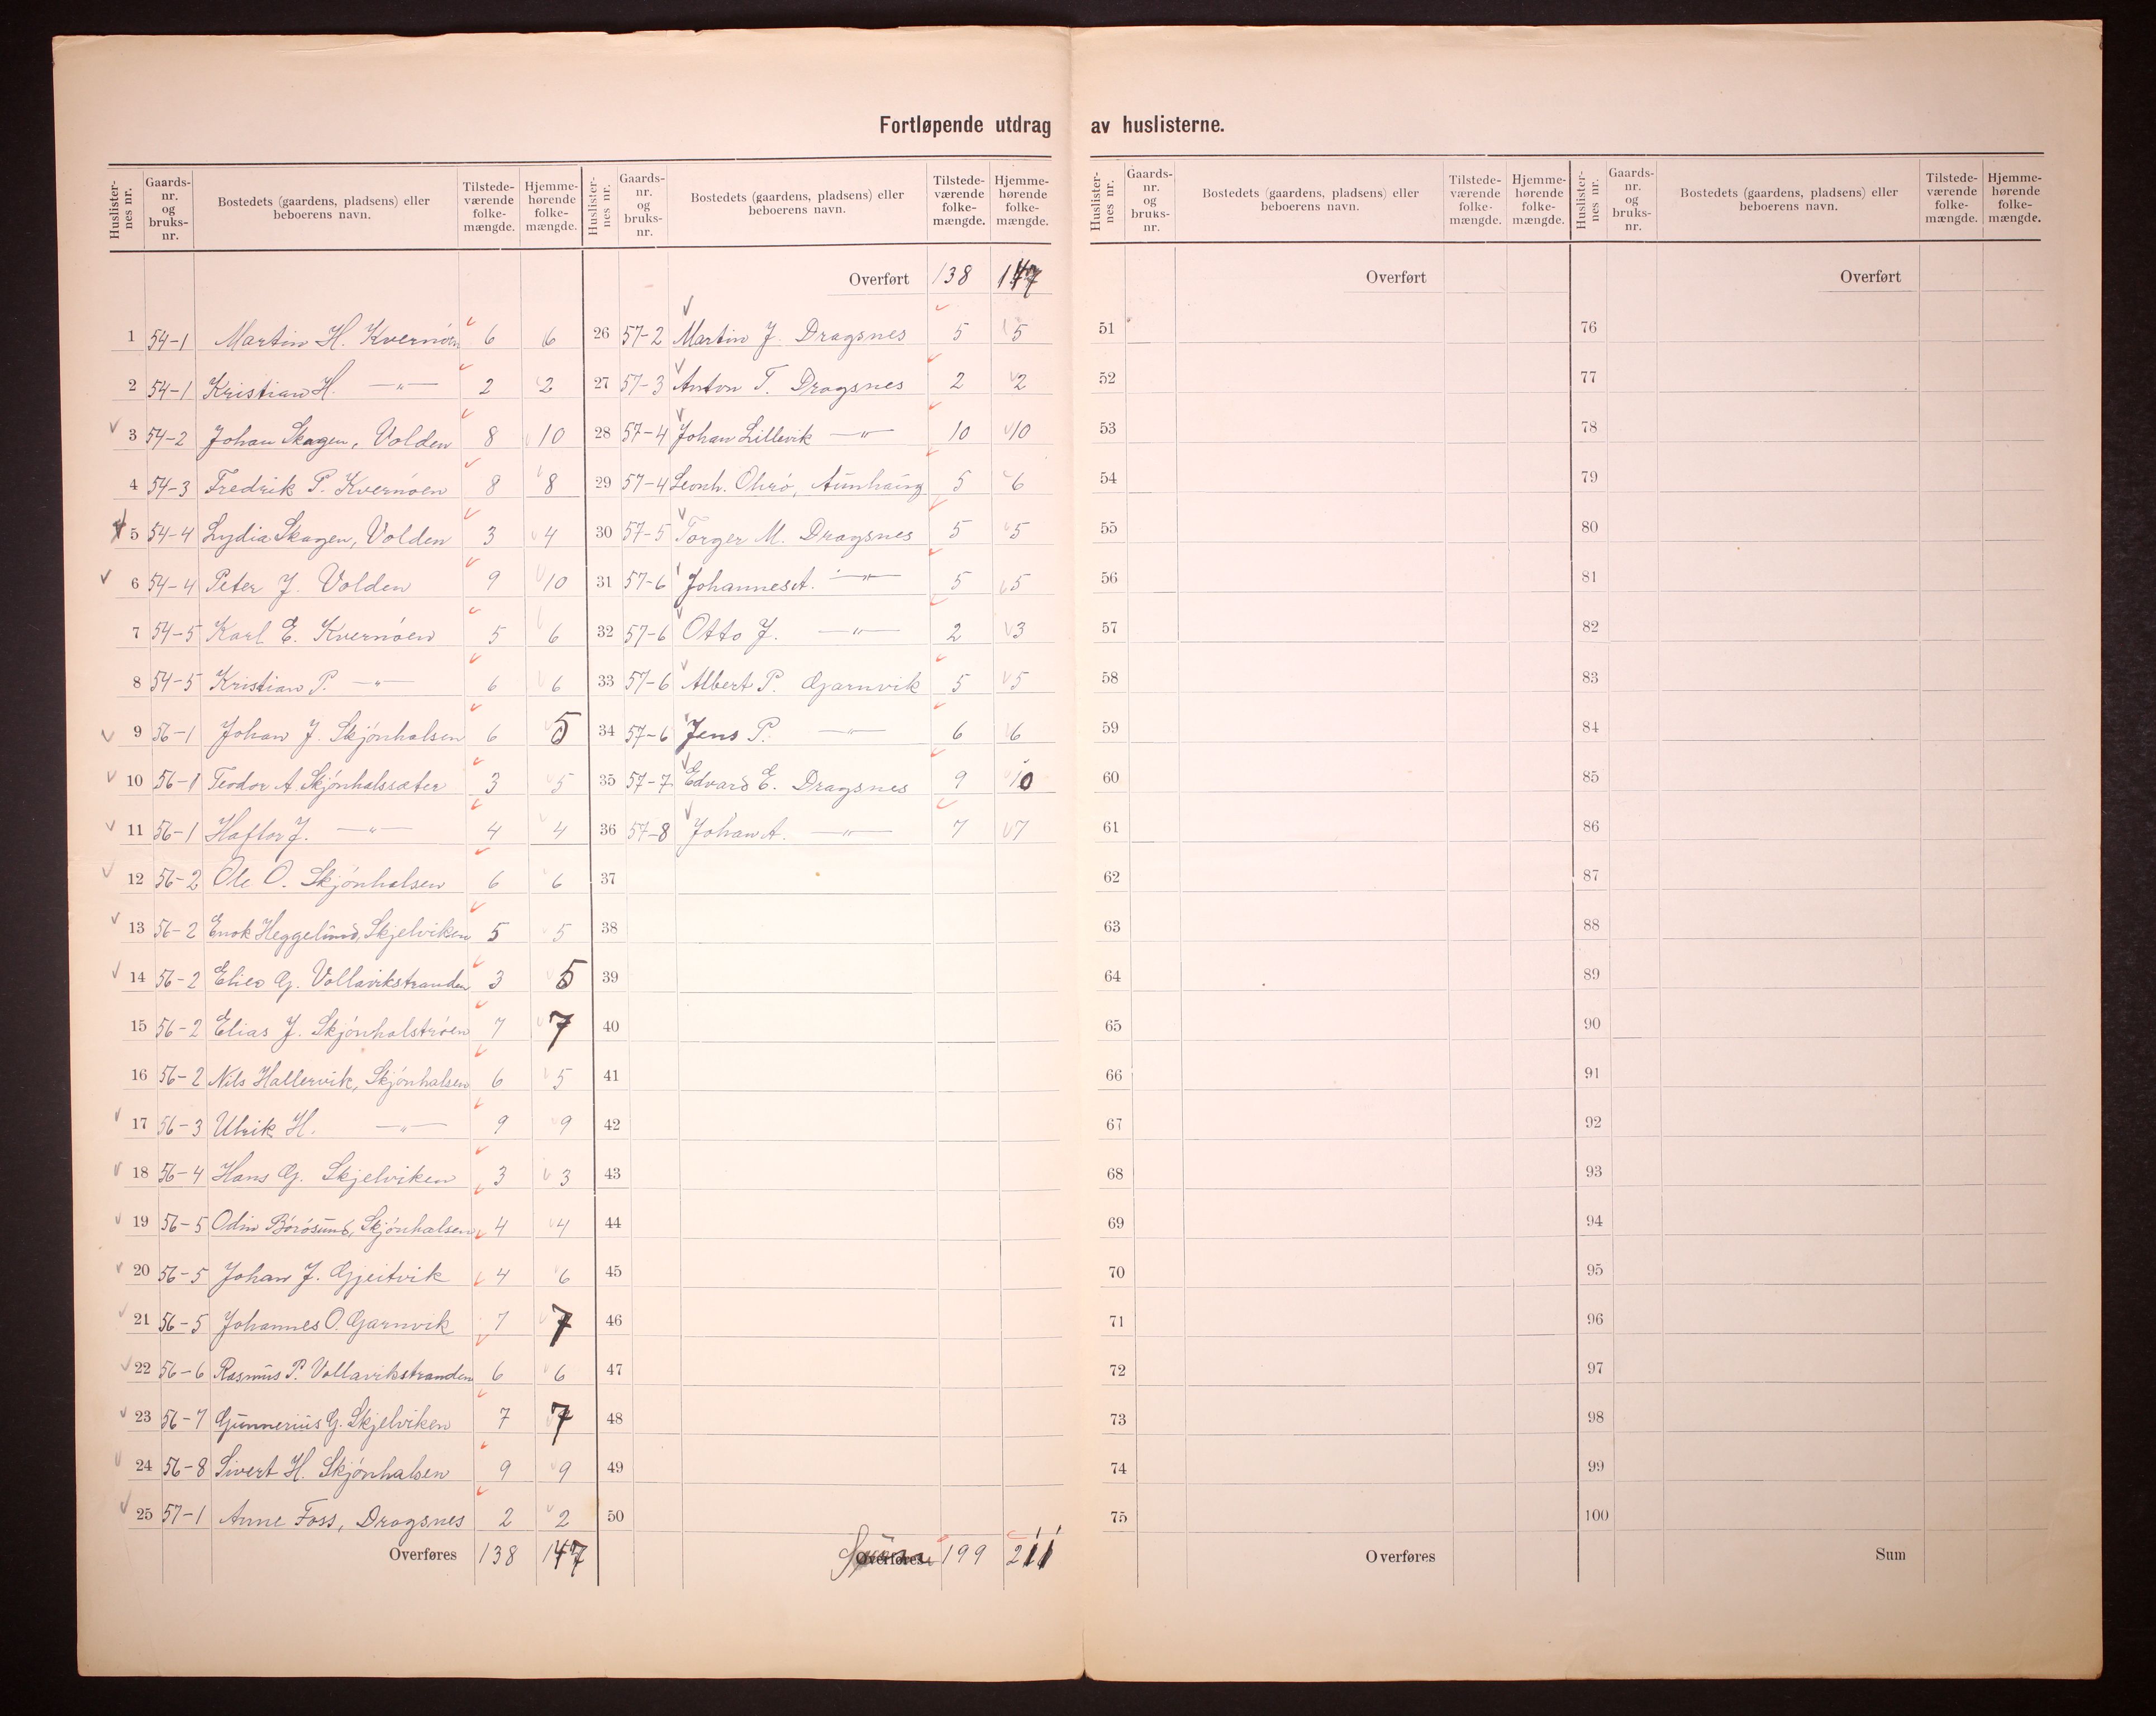 Fortløpende utdrag av huslisterne.
Huslister-nes nr. Gaards-nr. og bruks-nr. Bostedets (gaardens, pladsens) eller beboerens navn. Tilstede-værende folke-mængde. Hjemme-hørende folke-mængde.
1 54-1 Martin H. Kvernöen 6 6
2 54-1 Kristian H. —"— 2 2
3 54-2 Johan Skagen, Volden 8 10
4 54-3 Fredrik P. Kvernöen 8 8
5 54-4 Lydia Skagen, Volden 3 4
6 54-4 Peter J. Volden 9 10
7 54-5 Karl E. Kvernöen 5 6
8 54-5 Kristian P. —"— 6 6
9 56-1 Johan J. Skjönhalsen 6 5
10 56-1 Teodor A. Skjönhalssæter 3 5
11 56-1 Haftor J. —"— 4 4
12 56-2 Ole O. Skjönhalsen 6 6
13 56-2 Enok Heggelund, Skjelviken 5 5
14 56-2 G. Vollavikstranden 3 5
15 56-2 Elias J. Skjönhalströen 7 7
16 56-2 Nils Hallervik, Skjönhalsen 6 5
17 56-3 Ulrik H. —"— 9 9
18 56-4 Hans G. Skjelviken 3 3
19 56-5 Odin Börösund, Skjönhalsen 4 4
20 56-5 Johan J. Gjeitvik 4 6
21 56-5 Johannes O. Garnvik 7 7
22 56-6 Rasmus P. Vollavikstranden 6 6
23 56-7 Gunnerius G. Skjelviken 7 7
24 56-8 Sivert H. Skjönhalsen 9 9
25 57-1 Anne Foss, Dragsnes 2 2
Overføres 138 147
Huslister-nes nr. Gaards-nr. og bruks-nr. Bostedets (gaardens, pladsens) eller beboerens navn. Tilstede-værende folke-mængde. Hjemme-hørende folke-mængde.
Overført 138 147
26 57-2 Martin J. Dragsnes 5 5
27 57-3 Anton T. Dragsnes 2 2
28 57-4 Johan Lillevik —"— 10 10
29 57-4 Leonh. Ohrö, Aunhaug 5 6
30 57-5 Torger M. Dragsnes 5 5
31 57-6 Johannes A. —"— 5 5
32 57-6 Otto J. —"— 2 3
33 57-6 Albert P. Garnvik 5 5
34 57-6 Jens P. —"— 6 6
35 57-7 Edvard E. Dragsnes 9 10
36 57-8 Johan A. —"— 7 7
37
38
39
40
41
42
43
44
45
46
47
48
49
50
Overføres Sum 199 211
Huslister-nes nr. Gaards-nr. og bruks-nr. Bostedets (gaardens, pladsens) eller beboerens navn. Tilstede-værende folke-mængde. Hjemme-hørende folke-mængde.
Overført
51
52
53
54
55
56
57
58
59
60
61
62
63
64
65
66
67
68
69
70
71
72
73
74
75
Overføres
Huslister-nes nr. Gaards-nr. og bruks-nr. Bostedets (gaardens, pladsens) eller beboerens navn. Tilstede-værende folke-mængde. Hjemme-hørende folke-mængde.
Overført
76
77
78
79
80
81
82
83
84
85
86
87
88
89
90
91
92
93
94
95
96
97
98
99
100
Sum